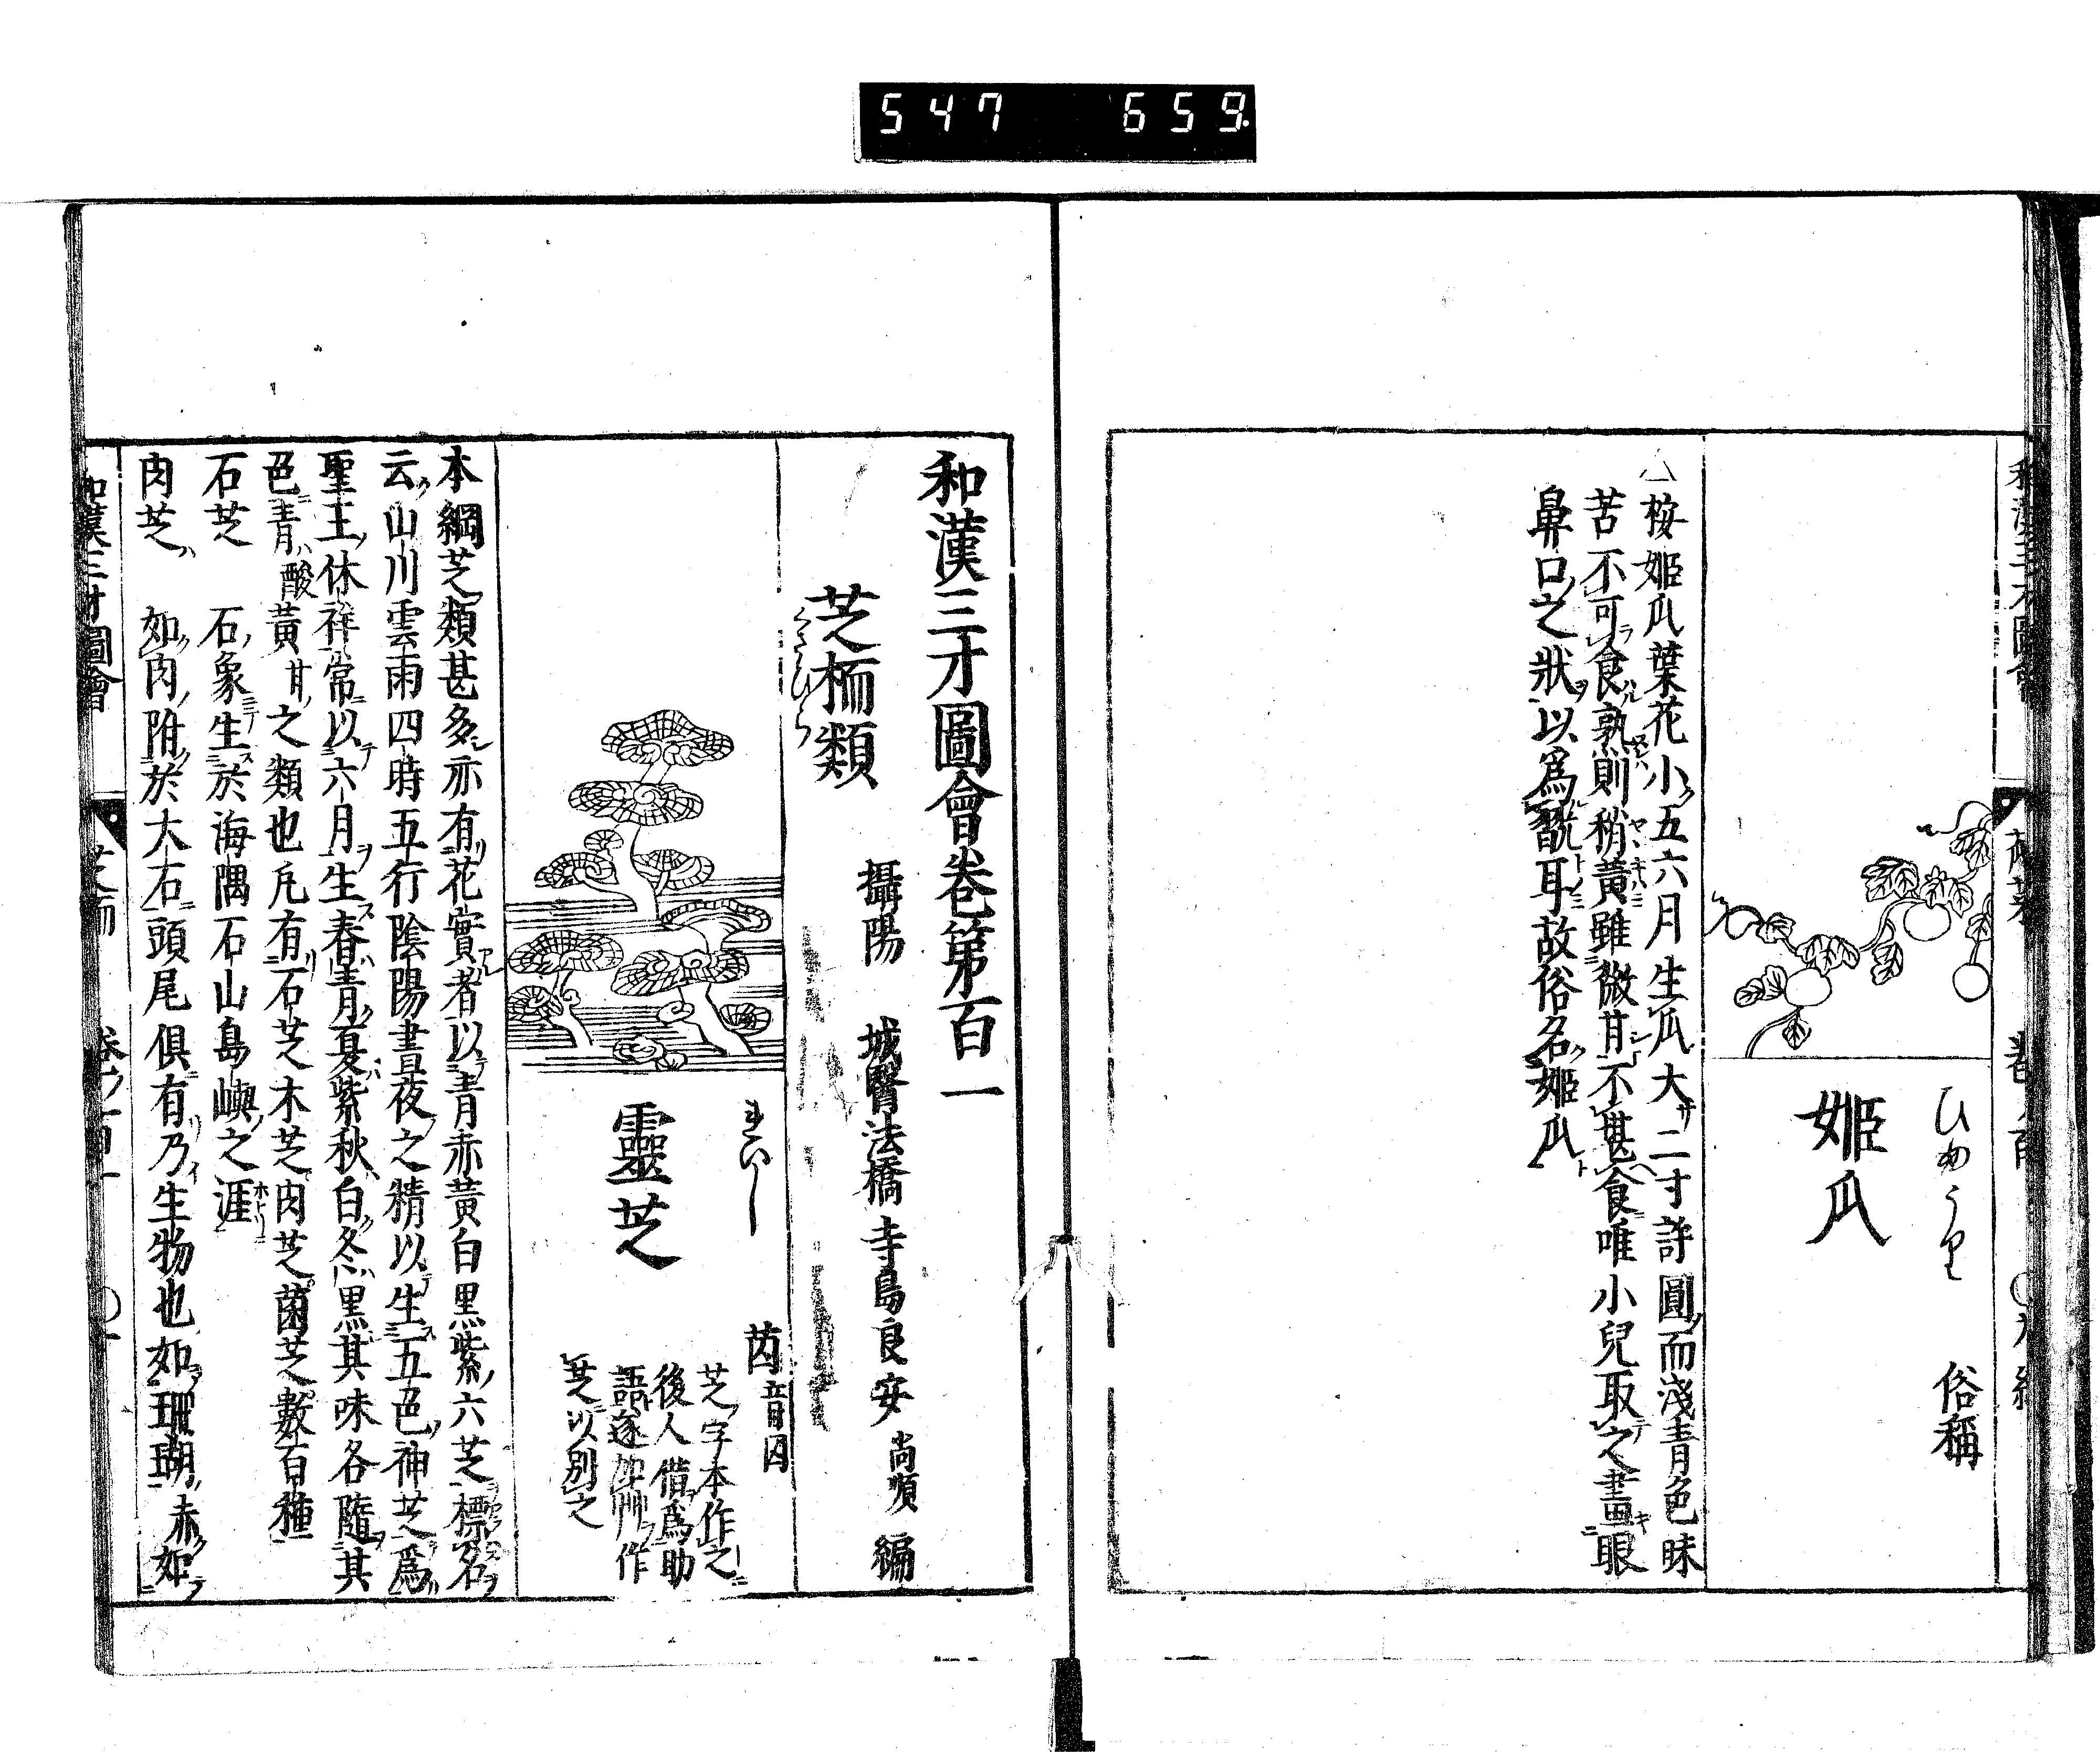 547 659.
ひめうり 俗稱
姬瓜
△桉姬瓜葉花小五六月生瓜大サ二寸許圓而淺青色味
苦不可食熟則稍黃雖微甘不甚食唯小兒取之畫眼
鼻口之狀以爲翫耳故俗名姬瓜
和漢三才圖會卷第百一
攝陽 城醫法橋寺島良安尚順編
芝栭類
くさびら
れいし
芮音囚
靈芝
芝字本作之
後人借爲助
語遂加艸作
芝以別之
本綱芝類甚多亦有花實者以青赤黃白黑紫六芝標名
云山川雲雨四時五行陰陽晝夜之精以生五色神芝爲
聖王休祥常以六月生春青夏紫秋白冬黑其味各隨其
色青酸黃甘之類也凡有石芝木芝肉芝菌芝數百種
石芝 石象生於海隅石山島嶼之涯
肉芝 如肉附於大石頭尾俱有乃生物也如珊瑚赤如
和漢三才圖會 芝栭 卷ノ百一 〇一